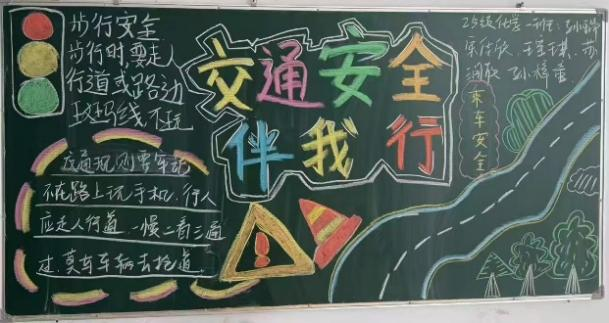 步行安全
步行时要走人
行道或路边
斑马线不玩
交通安全
伴我行
交通规则要牢记
不在路上玩手机.行人
应走人行道 一慢二看三通
过.莫与车辆去抢道.
25级化学一班:
乘车安全